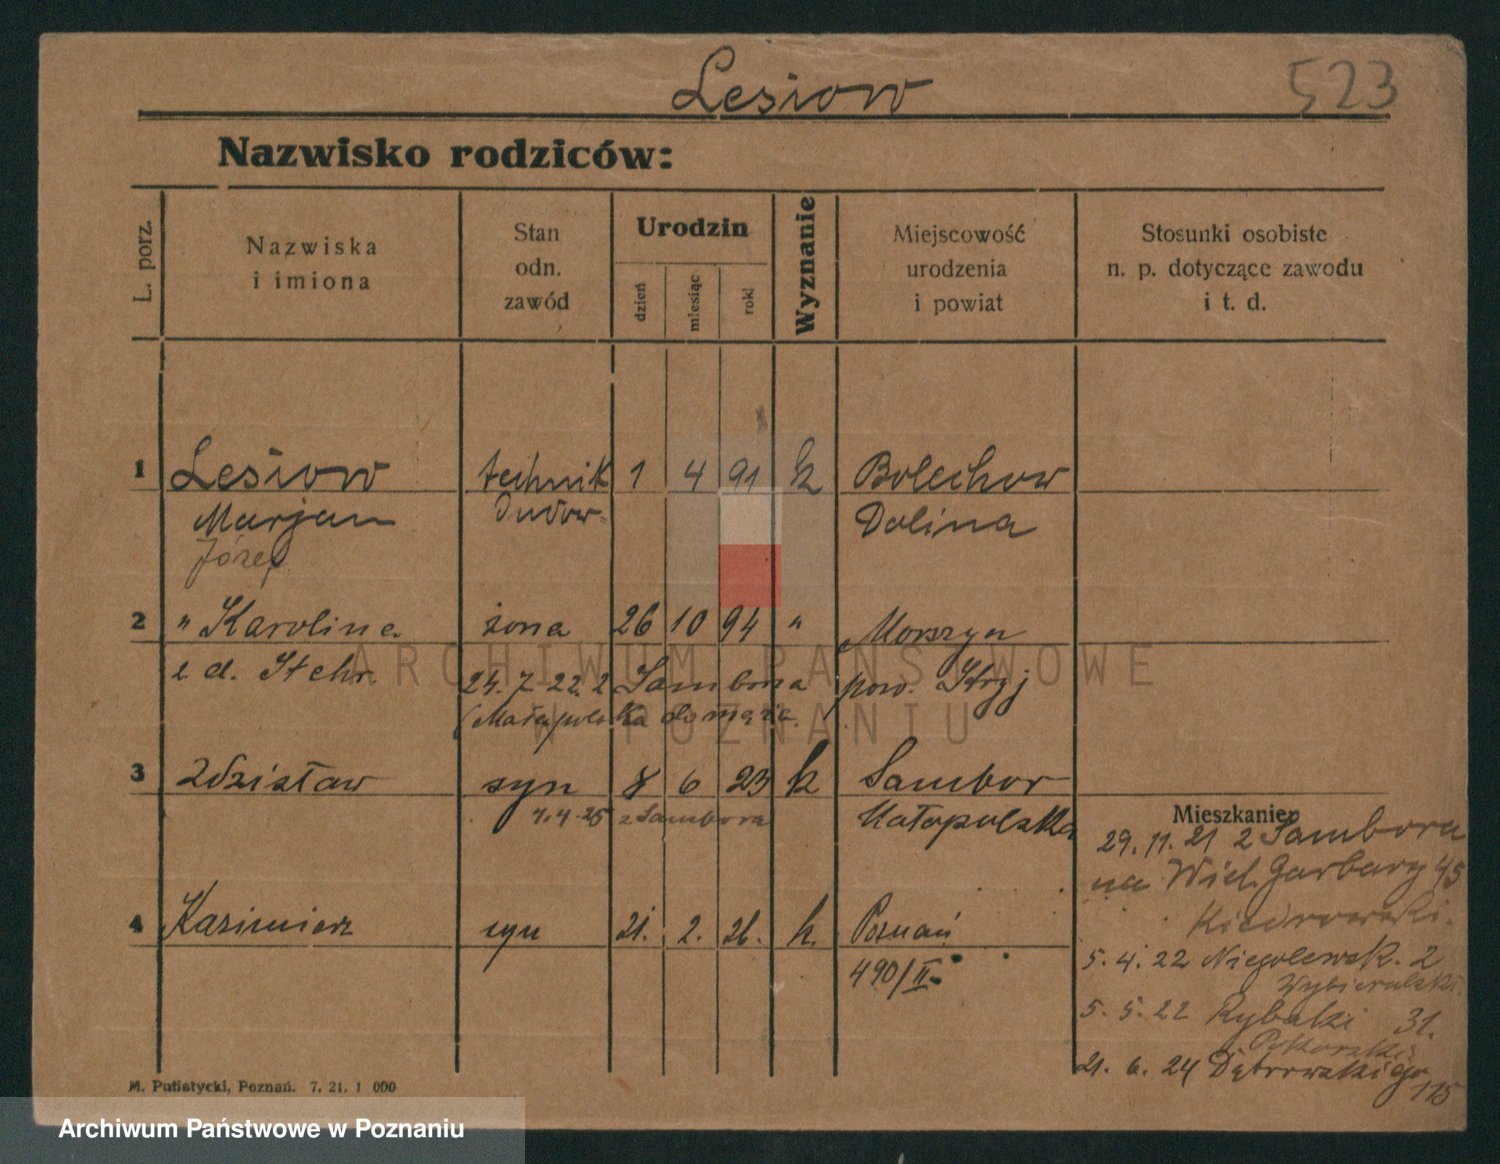 Lesiow
523
Nazwisko rodziców:
L. porz.
Nazwiska
i imiona
Stan
odn.
zawód
Urodzin
dzień
miesiąc
rok
Wyznanie
Miejscowość
urodzenia
i powiat
Stosunki osobiste
n. p. dotyczące zawodu
i t. d.
1 Lesiow technik 1 4 91 k Bolechow
Marjan budow. Dolina
Józef
2 " Karolina żona 26 10 94 " Morszyn
z d. Stehr. 24. 7. 22. z Sambora pow. Stryj
(Małopolska do męża.
3 Zdzisław syn 8 6 23 k Sambor
1.4.25 z Sambora Małopolska
Mieszkanie:
29. 11. 21 z Sambora
na Wiel. Garbary 45
4 Kazimierz syn 21. 2. 26. k. Poznań
490/II.
5. 4. 22 Niegolewsk. 2
Wybieralski.
5. 5. 22 Rybaki 31.
21. 6. 24 Dąbrowskiego
115
M. Putiatycki, Poznań. 7. 21. 1 000
ARCHIWUM PAŃSTWOWE
W POZNANIU
Archiwum Państwowe w Poznaniu